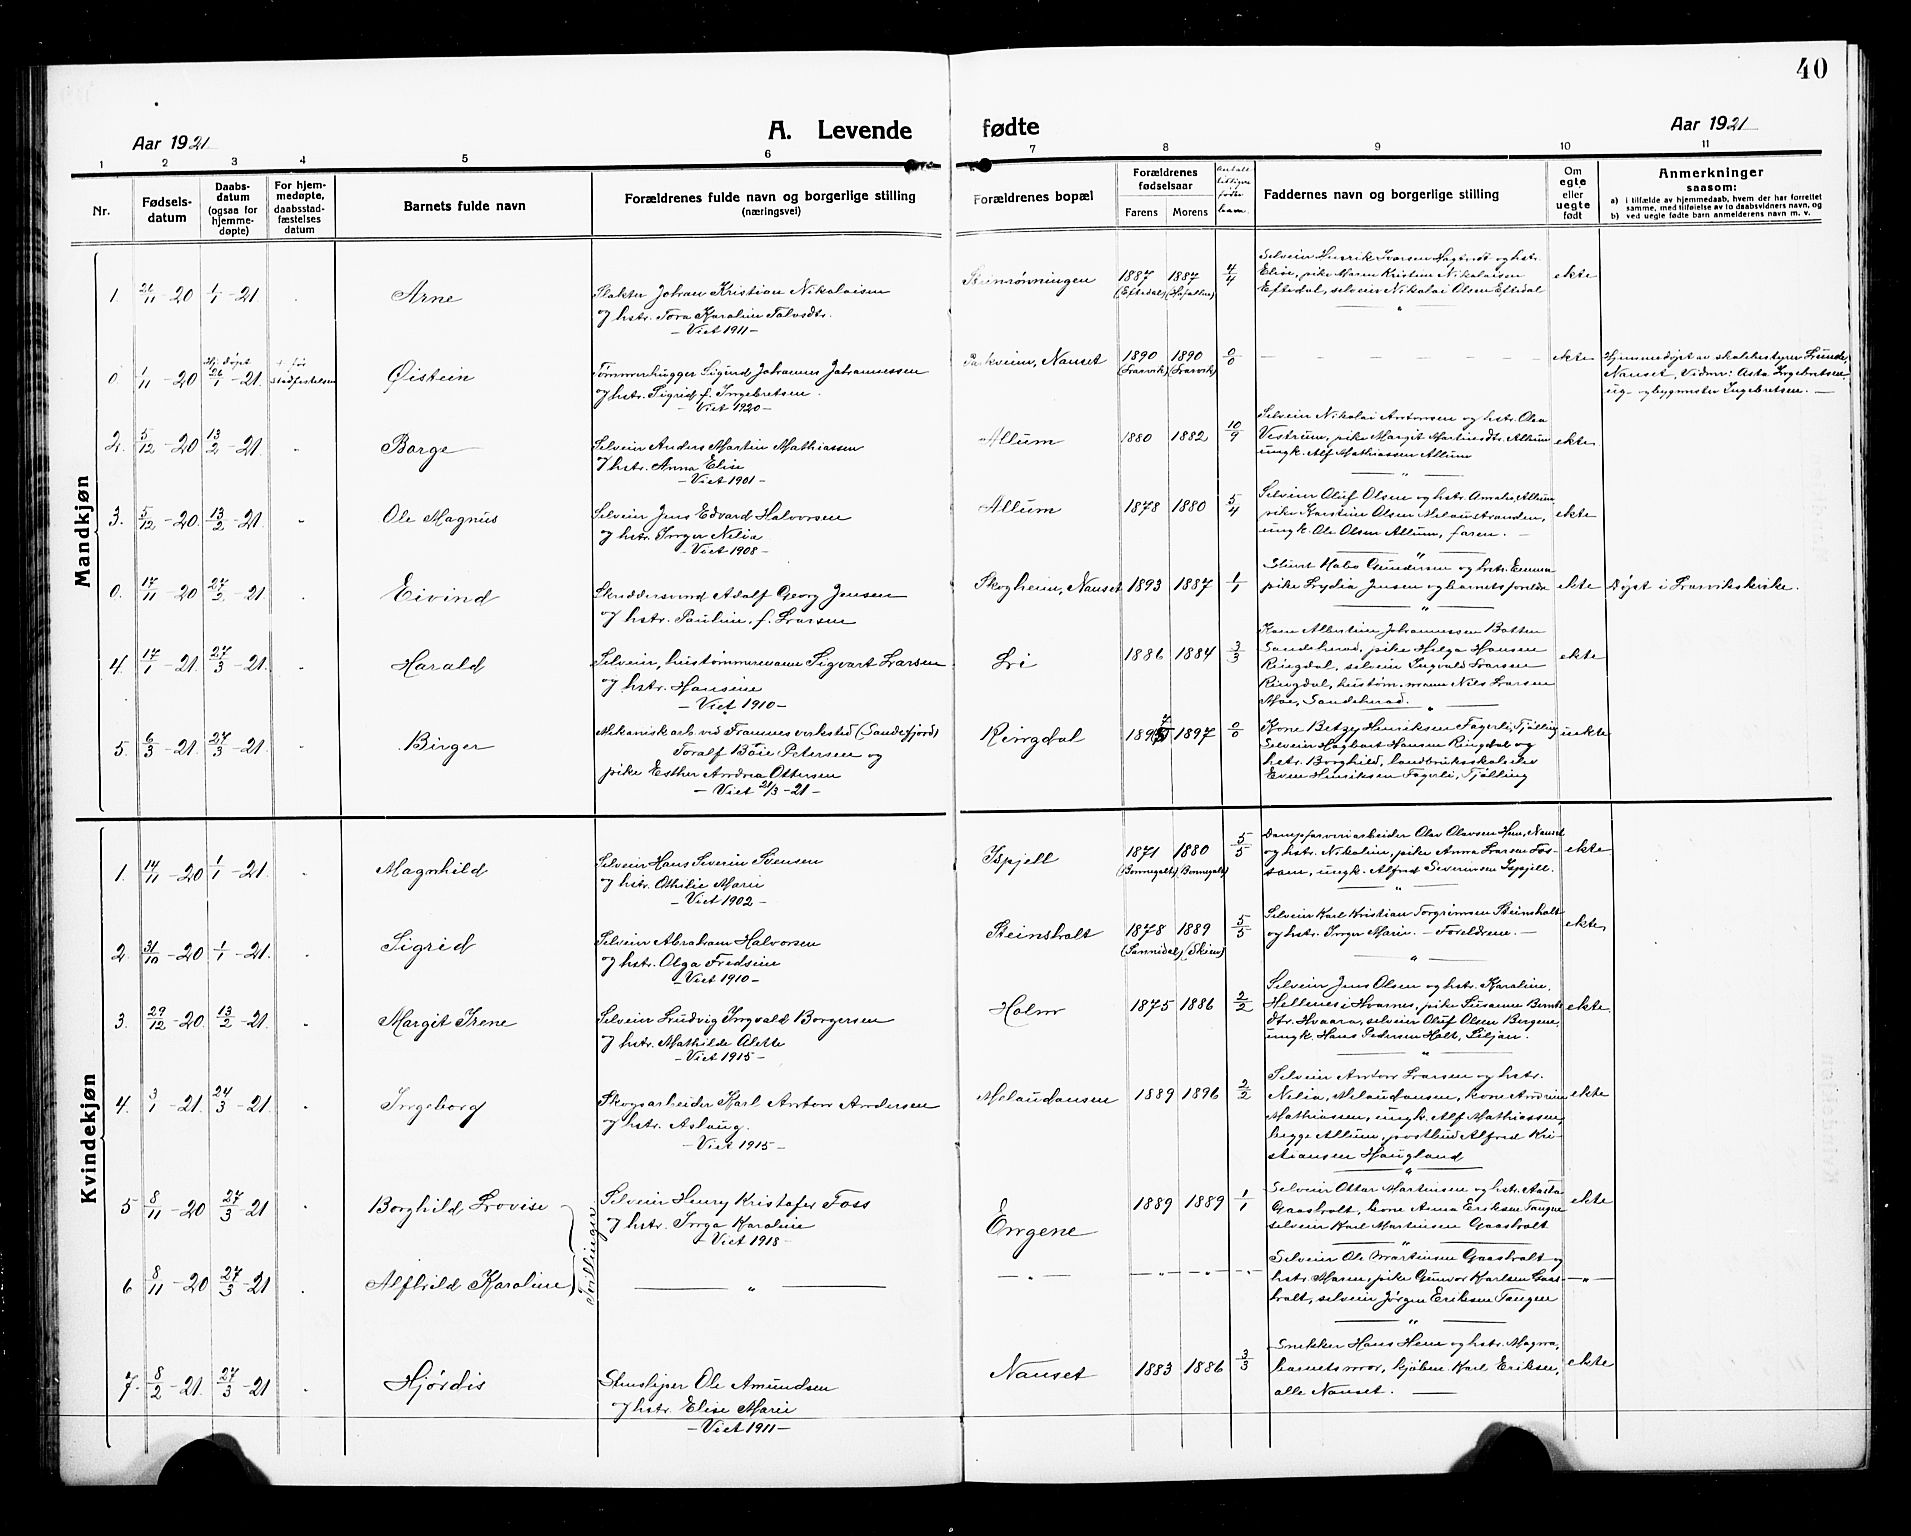 40
Aar 1921
A. Levende fødte
Aar 1921
1 2 3 4 5 6 7 8 9 10 11
Nr.
Fødsels-
datum
Daabs-
datum
(ogsaa for
hjemme-
døpte)
For hjem-
medøpte,
daabsstad-
fæstelses
datum
Barnets fulde navn
Forældrenes fulde navn og borgerlige stilling
(næringsvei)
Forældrenes bopæl
Forældrenes
fødselsaar
Farens Morens
Faddernes navn og borgerlige stilling
Om
egte
eller
uegte
født
Anmerkninger
saasom:
a) i tilfælde av hjemmedaab, hvem der har forrettet
samme, med tilføielse av to daabsvidners navn, og
b) ved uegte fødte barn anmelderens navn m. v.
Mandkjøn
1. 26/11-20 1/1-21 Arne
Slakter Johan Kristian Nikolaisen
og hstr. Tora Karoline Talvsdtr.
- Viet 1911 -
Steinrønningen 1887 1887 4/4
(Eftedal)
Selveier Henrik Ivarsen Hagtvedt og hstr.
Elise, pike Maren Kristine Nikolaisen
Eftedal, selveier Nikolai Olsen Eftedal
ekte
0. 1/11-20 Hj. døpt 26/1-21 stadfestelsen Øistein
Tømmerhugger Sigurd Johannes Johannessen
og hstr. Sigrid f. Ingebretsen.
- Viet 1920 -
Parkveien, Nanset 1890 1890 0/0
(Larvik) (Larvik)
ekte
Hjemmedøpt av skolebestyrer Lunde,
Nanset, Vidner: Asta Ingebretsen,
og bygmester Ingebretsen. -
2. 5/12-20 13/2-21 Borge
Selveier Anders Martin Mathiassen
og hstr. Anna Elise
- Viet 1901 -
Allum 1880 1882 10/9
Selveier Nikolai Antonsen og hstr. Olea
Vestrum, pike Margit Martinsdtr. Allum
ungk. Alf Mathiassen Allum
ekte
3. 5/12-20 13/2-21 Ole Magnus
Selveier Jens Edvard Halvorsen
og hstr. Inger Nelia
- Viet 1908 -
Allum 1878 1880 5/4
Selveier Oluf Olsen og hstr. Amalie, Allum
pike Karstine Olsen Melaustranden,
ungk. Ole Olsen Allum, faren. -
ekte
0. 17/11-20 27/2-21 Eivind
Skreddersvend Adolf Georg Jensen
og hstr. Pauline, f. Larsen
Skogheim, Nanset 1893 1887 1/1
Gundersen og hstr. Emma
pike Lydia Jensen og barnets foreldre
ekte
Døpt i Larvikskirke.
4. 17/1-21 27/3-21 Harald
Selveier, hustømmermann Sigvart Larsen
og hstr. Hansine
- Viet 1910 -
Li 1886 1884 3/3
Kone Albertine Johannessen Botten
Sandeherad, pike Helga Hansen
Ringdal, selveier Ingvald Larsen
Ringdal, hustøm.mann Nils Larsen
Moe, Sandeherad.
ekte
5. 6/3-21 27/3-21 Birger
Mekaniskarb. ved Framnes verksted (Sandefjord)
Toralf Bøie Petersen og
pike Esther Andrea Ottersen
- Viet 21/3-21 -
Ringdal 1897 1897 0/0
Kone Betzy Henriksen Fagerli, Tjølling
Selveier Hagbart Hansen Ringdal og
hstr. Borghild, landbruksskoleelev
Even Henriksen Fagerli, Tjølling
uekte
Kvindekjøn
1. 14/11-20 1/1-21 Magnhild
Selveier Hans Severin Svensen
og hstr. Othilie Marie
- Viet 1902 -
Ispjell 1871 1880 5/5
Dampfarveriarbeider Olav Olavsen Hem, Nanset
og hstr. Nikoline, pike Anna Larsen Fos-
sum, ungk. Alfred Severinsen Ispjell.
ekte
2. 31/10-20 1/1-21 Sigrid
Selveier Abraham Halvorsen
og hstr. Olga Fredsine
- Viet 1910 -
Steinsholt 1878 1889 5/5
(Sannidal) (Skien)
Selveier Karl Kristian Torgrimsen Steinsholt
og hstr. Inger Marie. - Foreldrene. -
ekte,
3. 29/12-20 13/2-21 Margit Irene
Selveier Ludvig Ingvald Borgersen
og hstr. Mathilde Alette
- Viet 1915 -
Holm 1875 1886 2/2
Selveier Jens Olsen og hstr. Karoline,
Hellenes i Hvarnes, pike Susanne Bernts-
dtr. Hvaara, selveier Oluf Olsen Bergene,
ungk. Hans Pedersen Holt, Siljan.
ekte.
4. 3/1-21 24/3-21 Ingeborg
Skogsarbeider Karl Anton Andersen
og hstr. Aslaug.
- Viet 1915 -
Melaudansen 1889 1896 2/2
Selveier Anton Larsen og hstr.
Nelia, Melaudansen, kone Andrine
Mathiassen, ungk. Alf Mathiassen,
begge Allum, postbud Alfred Kri-
stiansen Haugland
ekte
5 8/11-20 27/3-21 Borghild Lovise
Tvillinger
Selveier Henry Kristofer Foss
og hstr. Inga Karoline
- Viet 1918 -
Engene 1889 1889 1/1
Selveier Ottar Martinsen og hstr. Aasta
Gaasholt, kone Anna Eriksen Tangen
selveier Karl Martinsen Gaasholt
ekte
6 8/11-20 27/3-21 Alfhild Karoline
— „ —
— „ — „ — „ —
Selveier Ole Martinsen Gaasholt og
hstr. Maren, pike Gunvor Karlsen Gaas-
holt, selveier Jørgen Eriksen Tangen
— „ —
7. 8/2-21. 27/3-21 Hjørdis
Stenslyper Ole Amundsen
og hstr. Elise Marie
- Viet 1911 -
Nanset 1883 1886 3/3
Snekker Hans Hem og hstr. Magna,
barnets mor, kjøbm. Karl Eriksen,
alle Nanset. —
ekte